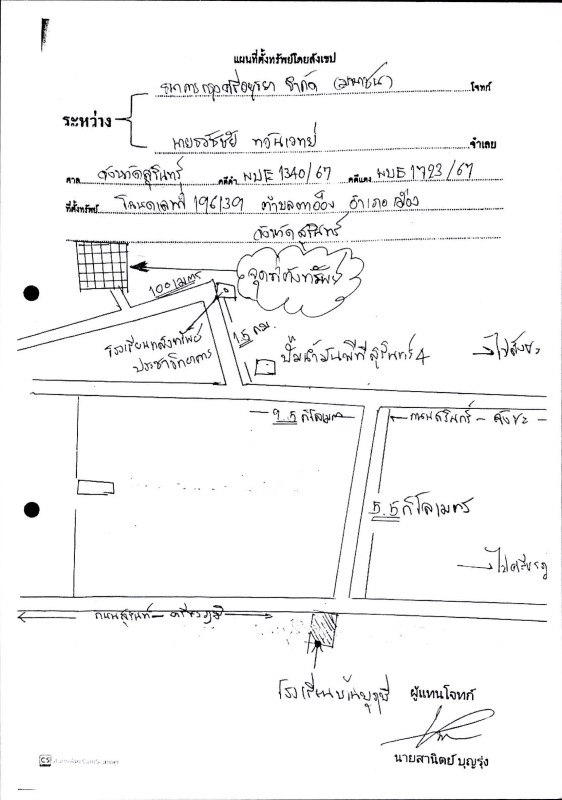 แผนที่ตั้งทรัพย์โดยสังเขป
ธนาคารกรุงศรีอยุธยา จำกัด (มหาชน) โจทก์
ระหว่าง
นายธวัชชัย จำเลย
ศาล จังหวัดสุรินทร์ คดีดำ ผบE 1340/67 คดีแดง ผบE 1723/67
ที่ตั้งทรัพย์ โฉนดเลขที่ 196139 ตำบลตาอ็อง อำเภอเมือง
จังหวัดสุรินทร์
จุดที่ตั้งทรัพย์
100 เมตร
1.5 กม.
โรงเรียน
ประชาวิทยาคาร
ปั๊มน้ำมันพีทีสุรินทร์ 4
ไปสังขะ
9.5 กิโลเมตร
ถนนสุรินทร์ - สังขะ
5.5 กิโลเมตร
ถนนสุรินทร์ -
โรงเรียนบ้าน
ผู้แทนโจทก์
นายสานิตย์ บุญรุ่ง
CS CamScanner